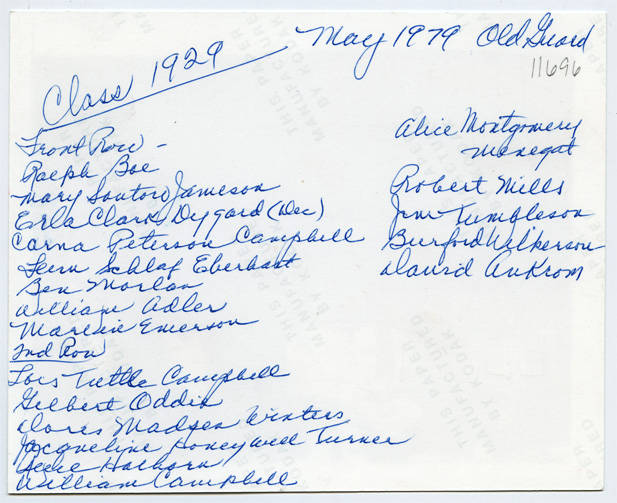 May 1979 Old Guard
11696
Class 1929
Front Row -
Ralph Boe
Mary Santoro Jameson
Erla Clark Dyggard (Dec)
Carna Peterson Campbell
Fern Schlaf Eberhart
Ben Morlan
William Adler
Maxine Emerson
2nd Row
Lois Tuttle Campbell
Gilbert Oddie
Doris Madsen Winters
Jacqueline Honeywell Turner
Holhorn
William Campbell
Alice Montgomery
Menegat
Robert Mills
Jim Tumbleson
Burford Wilkerson
David Ankrom